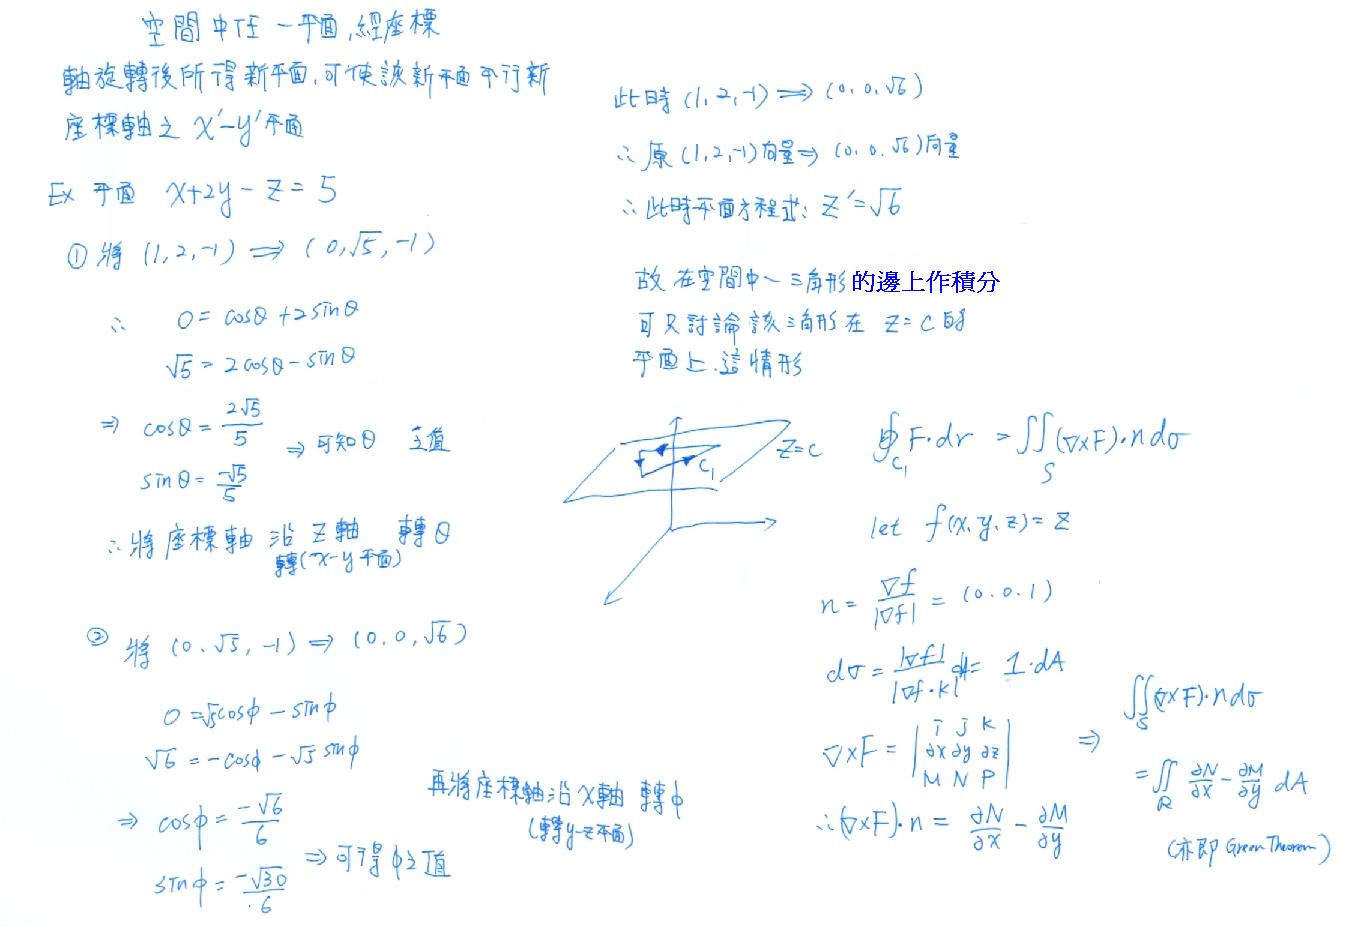 空間中任一平面,經座標
軸旋轉後所得新平面,可使該新平面平行新
座標軸之 x'-y'平面
Ex 平面 x+2y-z=5
① 將 (1,2,-1) ⇒ (0,√5,-1)
∴ 0=cosθ+2sinθ
√5=2cosθ-sinθ
⇒ cosθ=2√5/5
sinθ=-√5/5
⇒ 可知θ 之值
∴將座標軸沿 Z軸 轉θ
轉(x-y平面)
② 將 (0,√5,-1) ⇒ (0,0,√6)
0=√5cosφ-sinφ
√6=-cosφ-√5sinφ
⇒ cosφ=-√6/6
sinφ=-√30/6
⇒可得φ之值
再將座標軸沿x軸 轉φ
(轉y-z平面)
此時 (1,2,-1) ⇒ (0,0,√6)
∴原(1,2,-1)向量⇒(0,0,√6)向量
∴此時平面方程式: Z'=√6
故在空間中一三角形的邊上作積分
可只討論該三角形在 Z=C 的
平面上.這情形
Z=C
C₁
∮_C₁ F·dr = ∬_S (∇×F)·n dσ
let f(x,y,z)=Z
n=∇f/|∇f|=(0,0,1)
dσ=|∇f|/|∇f·k| dA=1·dA
∇×F=|i j k
∂x ∂y ∂z
M N P|
∴(∇×F)·n=∂N/∂x-∂M/∂y
⇒ ∬_S (∇×F)·n dσ
=∬_R ∂N/∂x-∂M/∂y dA
(亦即 Green Theorem)